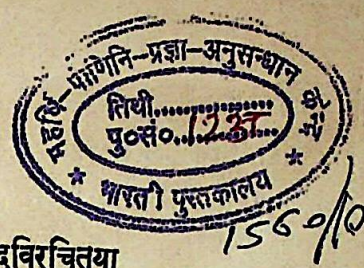 महर्षि-पाणिनि-प्रज्ञा-अनुसन्धान
तिथी..................
पु०सं०..................
* भारती पुस्तकालय *
1560/10
दविरचितया